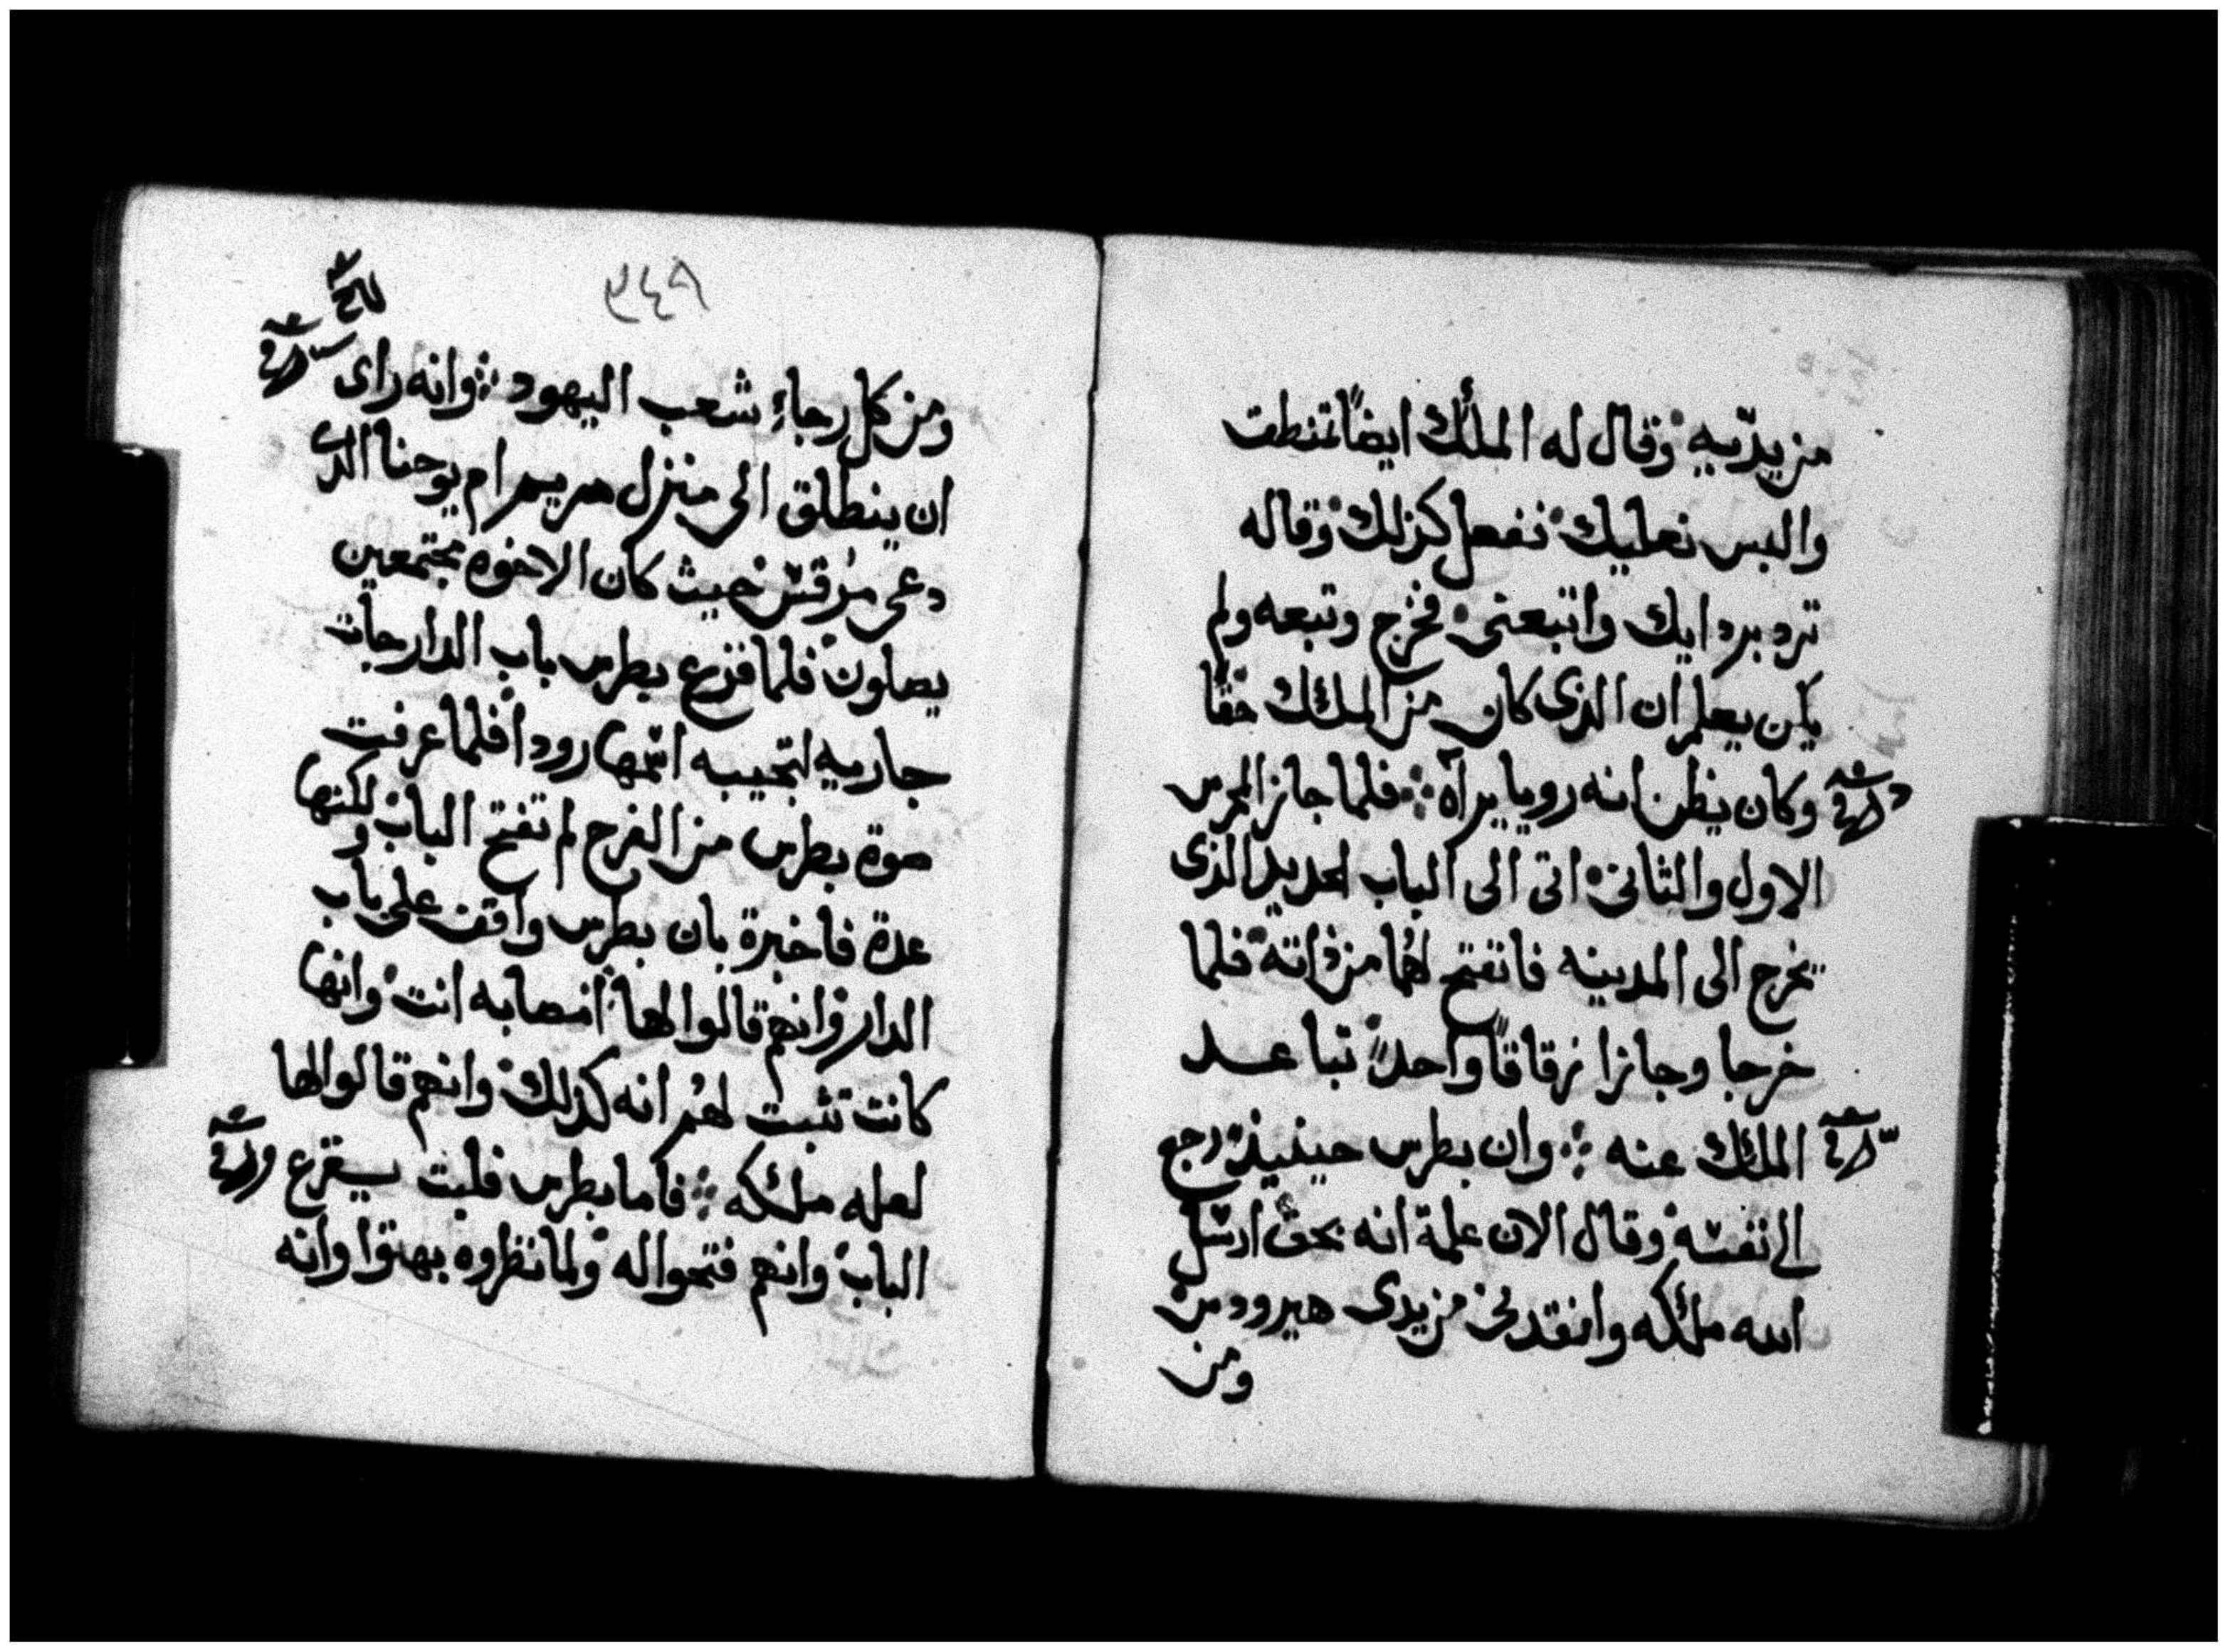 من يدّيه وقال له الملأك ايضاً تمنطق
والبس نعليك ففعل كذلك وقاله
ترد بردايك واتبعنى فخرج وتبعه ولم
يكن يعلم ان الذى كان من الملاك حقًا
وكان يظن انه رويا يرآه فلما جاز المحرس
الاول والثانى اتى الى الباب الحديد الذى
يخرج الى المدينه فانفتح لهُما من ذاتة فلما
خرجا وجازا زقاقاً واحداً تباعد
الملاك عنه وان بطرس حينيذ رجع
الى نفسه وقال الان علمة انه بحق ارسل
الله ملئكه وانقدنى من يدى هيرودس
ومن
٢٤٩
ومن كل رجاء شعب اليهود وانه راى
ان ينطلق الى منزل مريم ام يوحنا الذى
دعى مرقس حيث كان الاخوه مجتمعين
يصلون فلما قرع بطرس باب الدار جات
جاريه لتجيبه اسمها رودا فلما عرفت
صوة بطرس من الفرح لم تفتح الباب ولكنها
عدة فاخبرة بان بطرس واقف على باب
الدار وانهم قالوا لها امصابه انت وانها
كانت تثبت لهم انه كذلك وانهم قالوا لها
لعله ملئكه فاما بطرس فلبت يقرع
الباب وانهم فتحوا له ولما نظروه بهتوا وانه